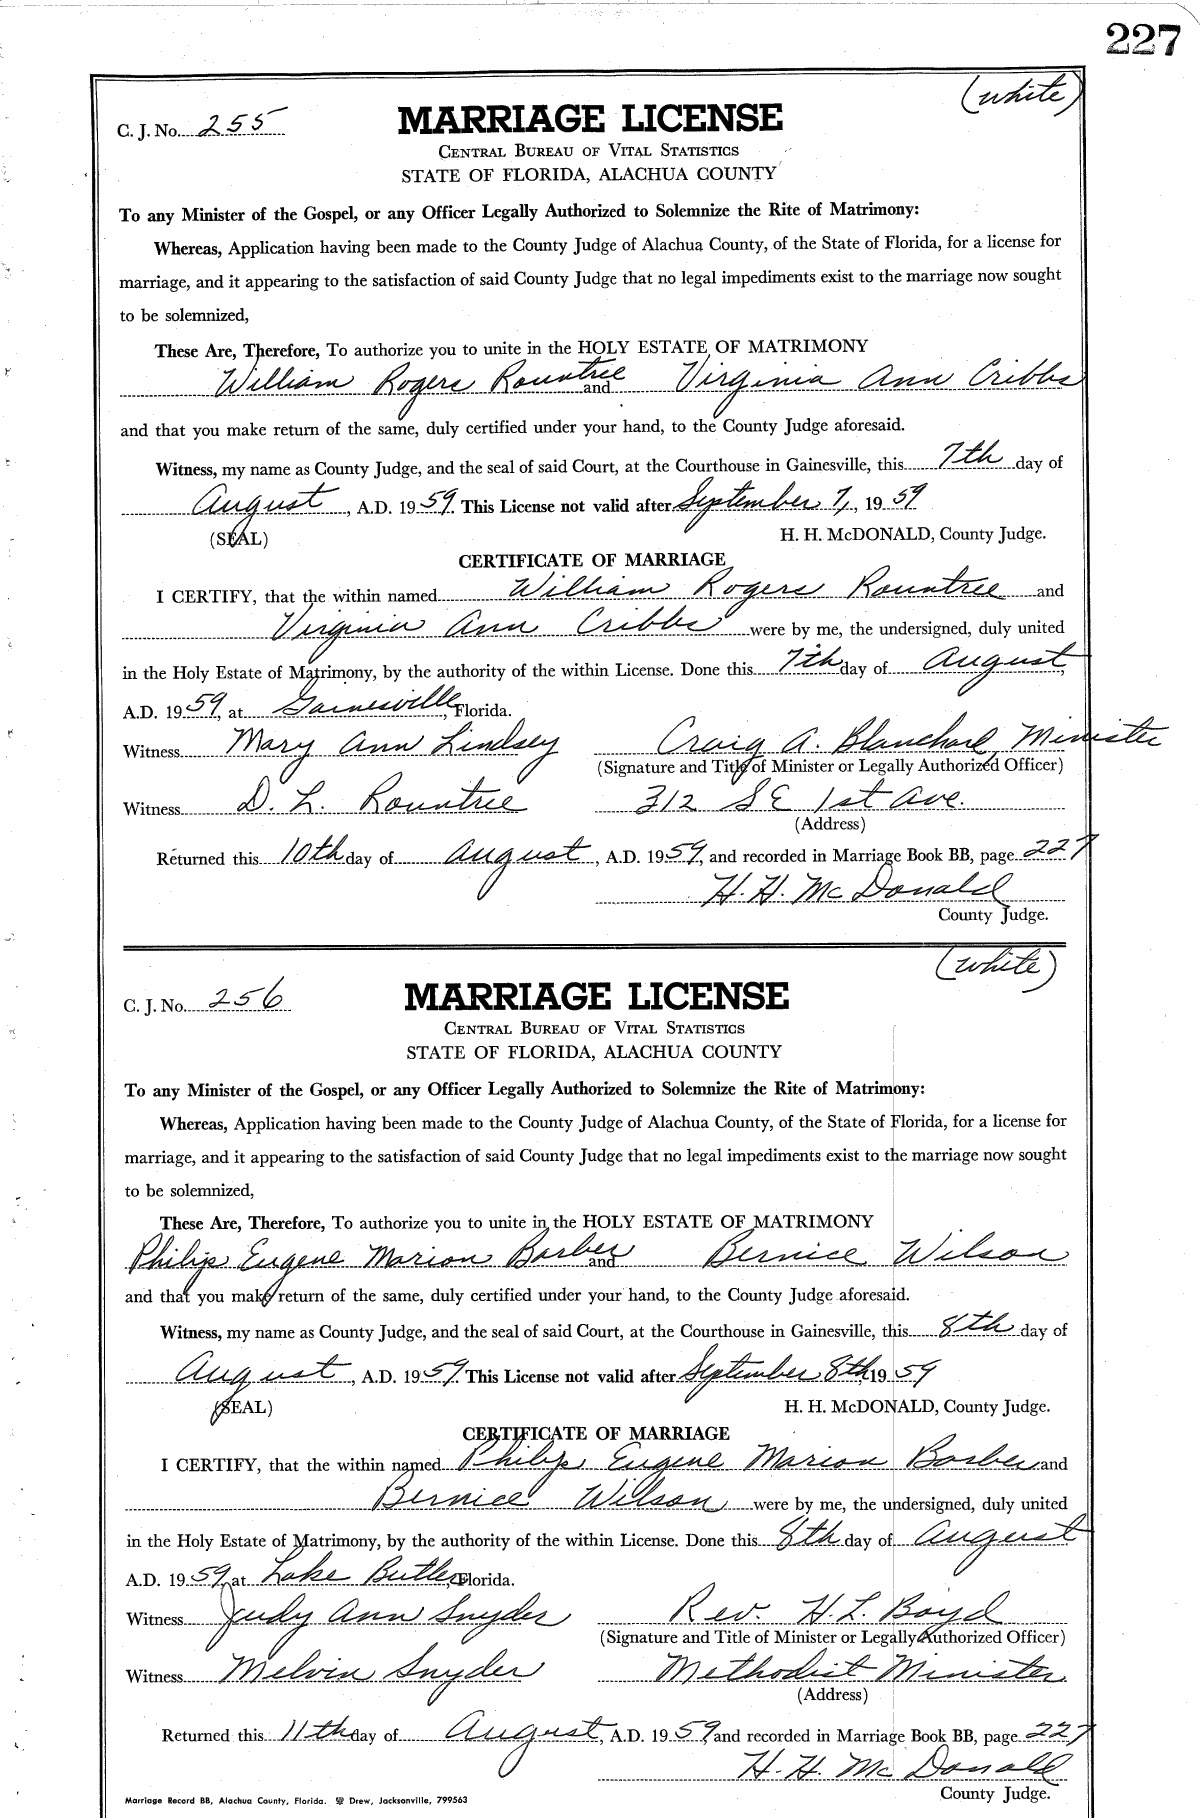 227
(white)
C. J. No. 255
MARRIAGE LICENSE
CENTRAL BUREAU OF VITAL STATISTICS
STATE OF FLORIDA, ALACHUA COUNTY
To any Minister of the Gospel, or any Officer Legally Authorized to Solemnize the Rite of Matrimony:
Whereas, Application having been made to the County Judge of Alachua County, of the State of Florida, for a license for
marriage, and it appearing to the satisfaction of said County Judge that no legal impediments exist to the marriage now sought
to be solemnized,
These Are, Therefore, To authorize you to unite in the HOLY ESTATE OF MATRIMONY
William Rogers Rountree and Virginia Ann Cribbs
and that you make return of the same, duly certified under your hand, to the County Judge aforesaid.
Witness, my name as County Judge, and the seal of said Court, at the Courthouse in Gainesville, this 7th day of
August, A.D. 1959. This License not valid after September 7, 1959
(SEAL) H. H. McDONALD, County Judge.
CERTIFICATE OF MARRIAGE
I CERTIFY, that the within named William Rogers Rountree and
Virginia Ann Cribbs were by me, the undersigned, duly united
in the Holy Estate of Matrimony, by the authority of the within License. Done this 7th day of August,
A.D. 1959, at Gainesville, Florida.
Witness Mary Ann Lindsey Craig A. Blanchard, Minister
(Signature and Title of Minister or Legally Authorized Officer)
Witness D. L. Rountree 312 SE 1st Ave.
(Address)
Returned this 10th day of August, A.D. 1959, and recorded in Marriage Book BB, page 227
H. H. McDonald
County Judge.
(white)
C. J. No. 256
MARRIAGE LICENSE
CENTRAL BUREAU OF VITAL STATISTICS
STATE OF FLORIDA, ALACHUA COUNTY
To any Minister of the Gospel, or any Officer Legally Authorized to Solemnize the Rite of Matrimony:
Whereas, Application having been made to the County Judge of Alachua County, of the State of Florida, for a license for
marriage, and it appearing to the satisfaction of said County Judge that no legal impediments exist to the marriage now sought
to be solemnized,
These Are, Therefore, To authorize you to unite in the HOLY ESTATE OF MATRIMONY
Philip Eugene Marion Barber and Bernice Wilson
and that you make return of the same, duly certified under your hand, to the County Judge aforesaid.
Witness, my name as County Judge, and the seal of said Court, at the Courthouse in Gainesville, this 8th day of
August, A.D. 1959. This License not valid after September 8th, 1959
(SEAL) H. H. McDONALD, County Judge.
CERTIFICATE OF MARRIAGE
I CERTIFY, that the within named Philip Eugene Marion Barber and
Bernice Wilson were by me, the undersigned, duly united
in the Holy Estate of Matrimony, by the authority of the within License. Done this 8th day of August
A.D. 1959, at Lake Butler, Florida.
Witness Judy Ann Snyder Rev. H. L. Boyd
(Signature and Title of Minister or Legally Authorized Officer)
Witness Melvin Snyder Methodist Minister
(Address)
Returned this 11th day of August, A.D. 1959, and recorded in Marriage Book BB, page 227
H. H. McDonald
County Judge.
Marriage Record BB, Alachua County, Florida. Drew, Jacksonville, 799563